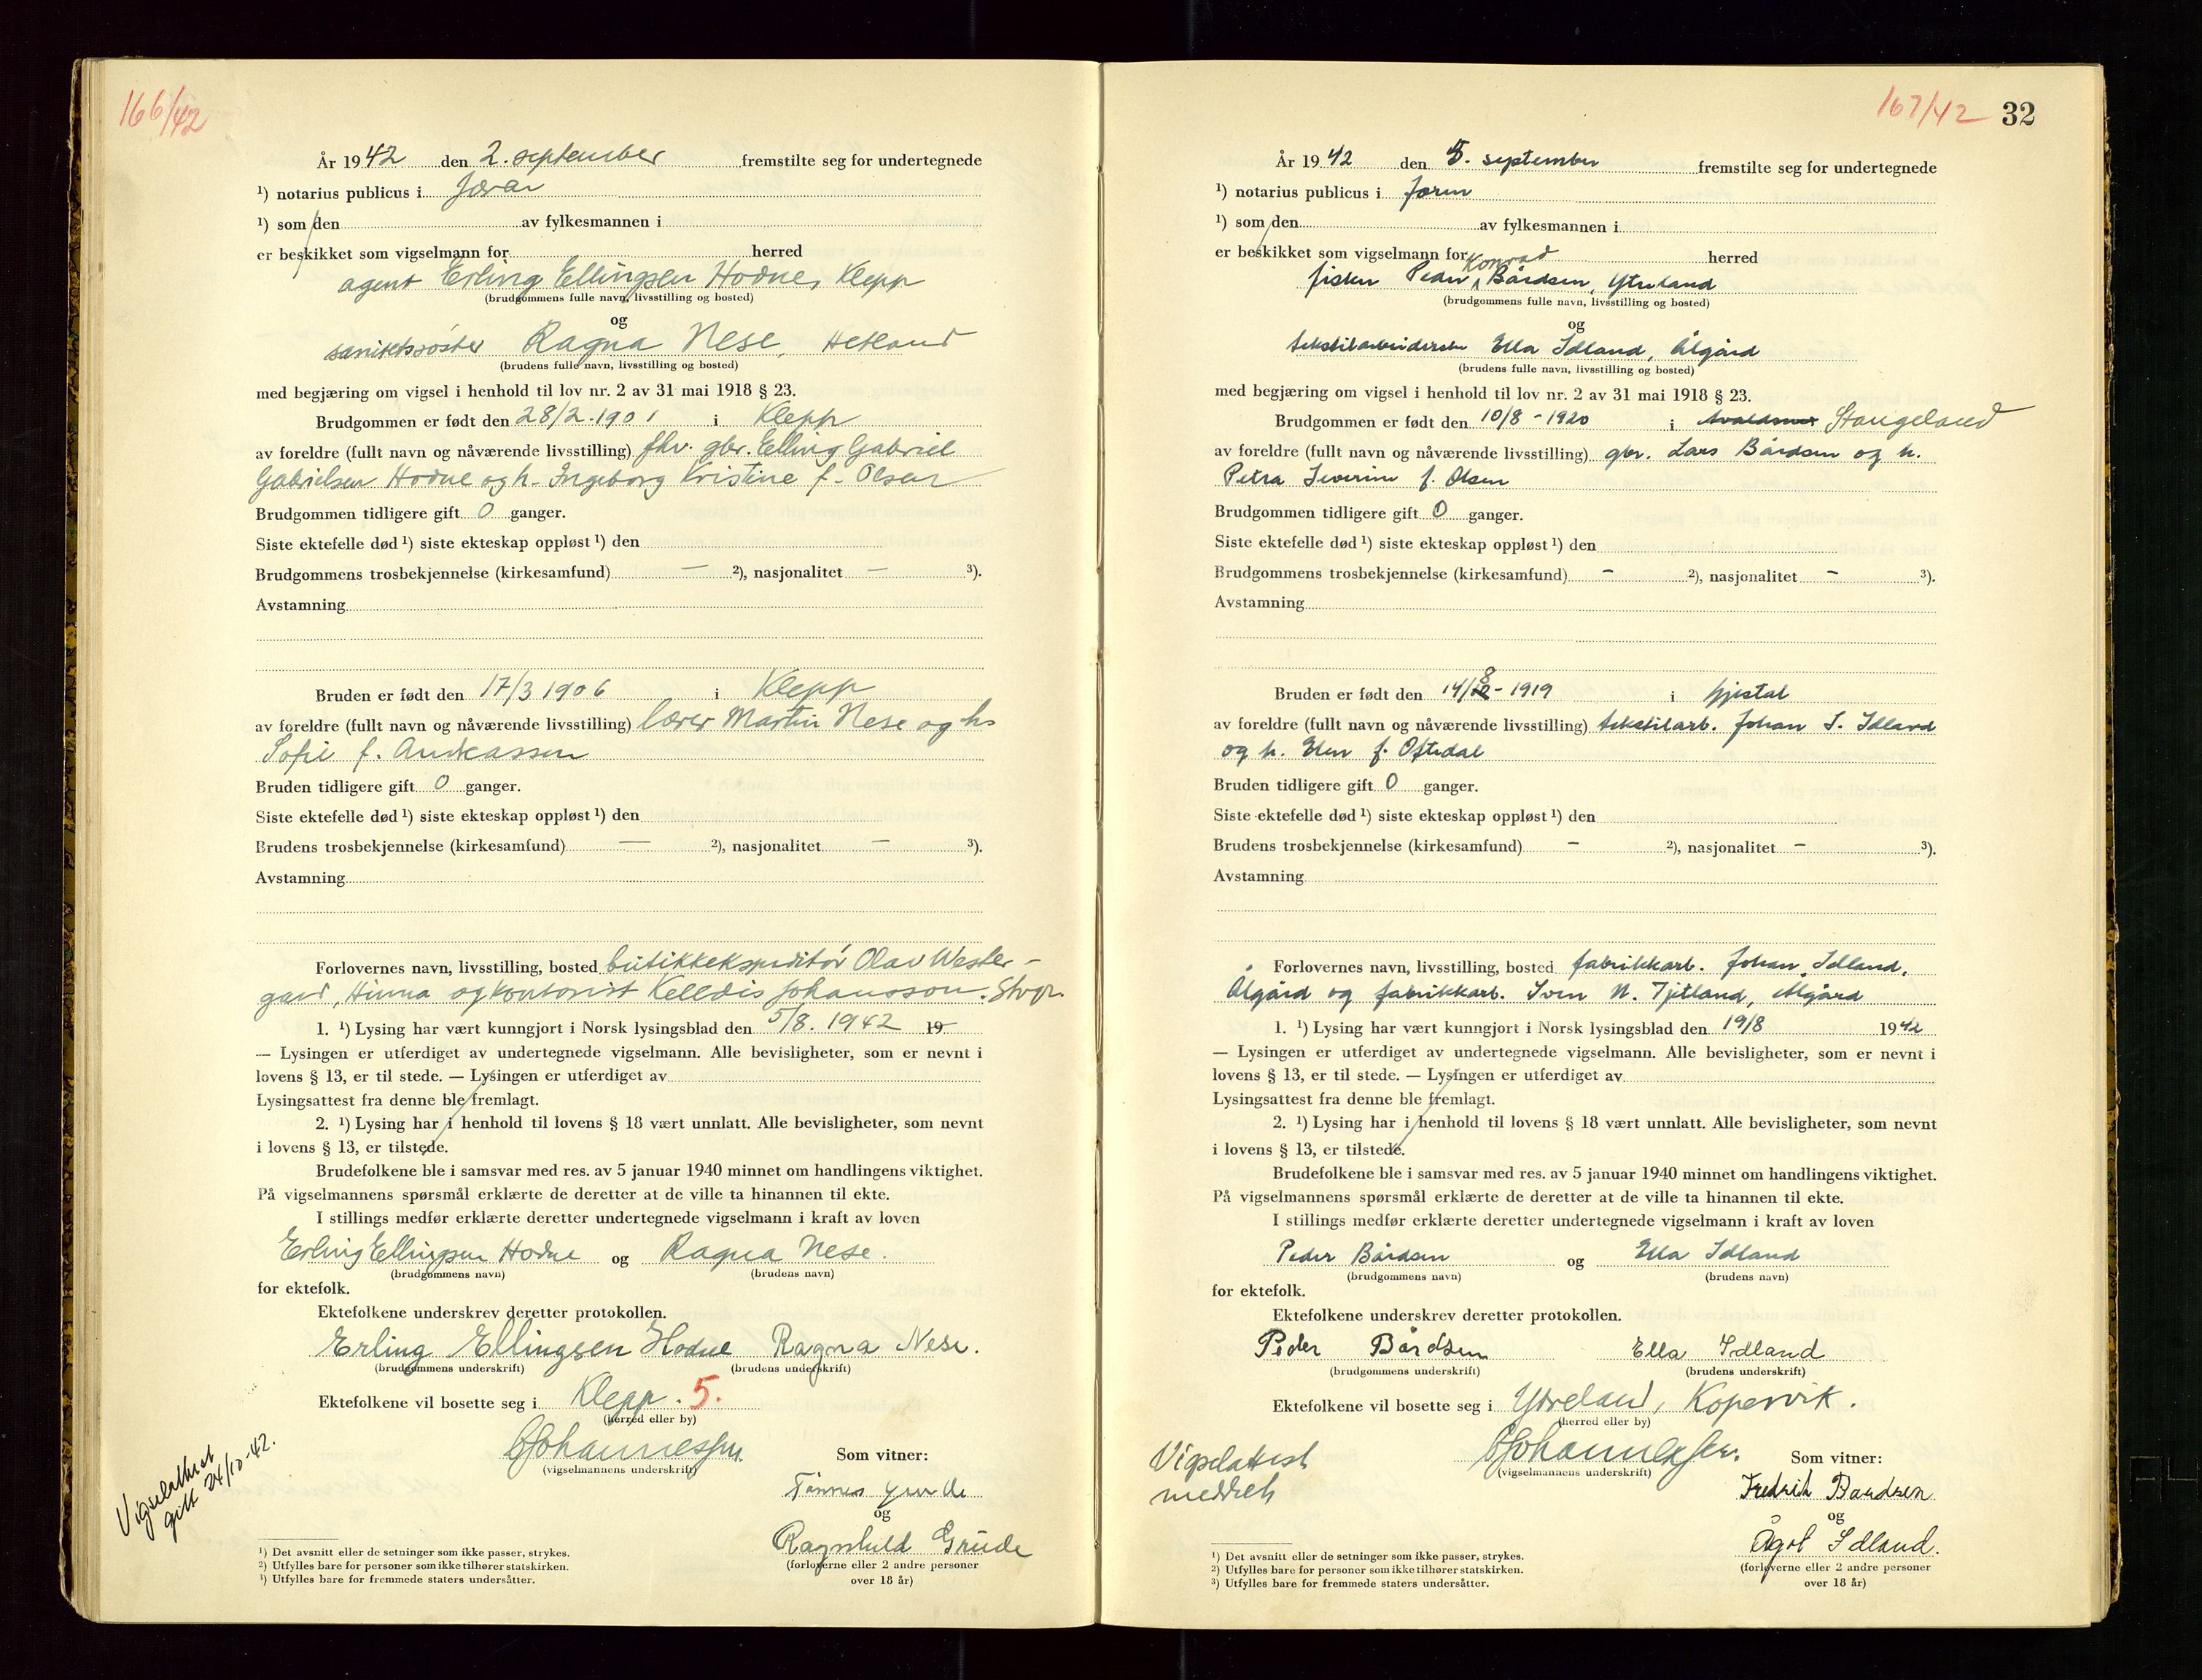 166/42
År 1942 den 2. september fremstilte seg for undertegnede
¹) notarius publicus i Jæren
¹) som den av fylkesmannen i
er beskikket som vigselmann for herred
agent Erling Ellingsen Hodne, Klepp
(brudgommens fulle navn, livsstilling og bosted)
og
sanitetssøster Ragna Nese, Hetland
(brudens fulle navn, livsstilling og bosted)
med begjæring om vigsel i henhold til lov nr. 2 av 31 mai 1918 § 23.
Brudgommen er født den 28/2-1901 i Klepp
av foreldre (fullt navn og nåværende livsstilling) fhv. gbr. Elling Gabriel
Gabrielsen Hodne og h. Ingeborg Kristine f. Olsen
Brudgommen tidligere gift 0 ganger.
Siste ektefelle død ¹) siste ekteskap oppløst ¹) den
Brudgommens trosbekjennelse (kirkesamfund) — ²), nasjonalitet — ³).
Avstamning
Bruden er født den 17/3 1906 i Klepp
av foreldre (fullt navn og nåværende livsstilling) lærer Martin Nese og h.
Sofie f. Andreassen
Bruden tidligere gift 0 ganger.
Siste ektefelle død ¹) siste ekteskap oppløst ¹) den
Brudens trosbekjennelse (kirkesamfund) — ²), nasjonalitet — ³).
Avstamning
Forlovernes navn, livsstilling, bosted butikkekspeditør Olav Wester-
gard, Hinna og kontorist Kelldis Johansson. Stvgr.
1. ¹) Lysing har vært kunngjort i Norsk lysingsblad den 5/8. 1942 19
— Lysingen er utferdiget av undertegnede vigselmann. Alle bevisligheter, som er nevnt i
lovens § 13, er til stede. — Lysingen er utferdiget av
Lysingsattest fra denne ble fremlagt.
2. ¹) Lysing har i henhold til lovens § 18 vært unnlatt. Alle bevisligheter, som nevnt
i lovens § 13, er tilstede.
Brudefolkene ble i samsvar med res. av 5 januar 1940 minnet om handlingens viktighet.
På vigselmannens spørsmål erklærte de deretter at de ville ta hinannen til ekte.
I stillings medfør erklærte deretter undertegnede vigselmann i kraft av loven
Erling Ellingsen Hodne og Ragna Nese.
(brudgommens navn) (brudens navn)
for ektefolk.
Ektefolkene underskrev deretter protokollen.
Erling Ellingsen Hodne Ragna Nese.
(brudgommens underskrift) (brudens underskrift)
Ektefolkene vil bosette seg i Klepp. 5.
(herred eller by)
Johannessen
(vigselmannens underskrift)
Som vitner:
Tønnes Grude
og
Ragnhild Grude
(forloverne eller 2 andre personer
over 18 år)
Vigselattest
gitt 24/10-42.
¹) Det avsnitt eller de setninger som ikke passer, strykes.
²) Utfylles bare for personer som ikke tilhører statskirken.
³) Utfylles bare for fremmede staters undersåtter.
167/42 32
År 1942 den 5. september fremstilte seg for undertegnede
¹) notarius publicus i Jæren
¹) som den av fylkesmannen i
er beskikket som vigselmann for herred
Konrad
fisker Peder Bårdsen, Ytreland
(brudgommens fulle navn, livsstilling og bosted)
og
tekstilarbeiderske Ella Idland, Ålgård
(brudens fulle navn, livsstilling og bosted)
med begjæring om vigsel i henhold til lov nr. 2 av 31 mai 1918 § 23.
Brudgommen er født den 10/8-1920 i Avaldsnes Stangeland
av foreldre (fullt navn og nåværende livsstilling) gbr. Lars Bårdsen og h.
Petra Severine f. Olsen
Brudgommen tidligere gift 0 ganger.
Siste ektefelle død ¹) siste ekteskap oppløst ¹) den
Brudgommens trosbekjennelse (kirkesamfund) - ²), nasjonalitet - ³).
Avstamning
Bruden er født den 14/8-1919 i Gjestal
av foreldre (fullt navn og nåværende livsstilling) tekstilarb. Johan S. Idland
og h. Elen f. Oftedal
Bruden tidligere gift 0 ganger.
Siste ektefelle død ¹) siste ekteskap oppløst ¹) den
Brudens trosbekjennelse (kirkesamfund) - ²), nasjonalitet - ³).
Avstamning
Forlovernes navn, livsstilling, bosted fabrikkarb. Johan Idland,
Ålgård og fabrikkarb. Sven N. Tjetland, Ålgård
1. ¹) Lysing har vært kunngjort i Norsk lysingsblad den 19/8 1942
— Lysingen er utferdiget av undertegnede vigselmann. Alle bevisligheter, som er nevnt i
lovens § 13, er til stede. — Lysingen er utferdiget av
Lysingsattest fra denne ble fremlagt.
2. ¹) Lysing har i henhold til lovens § 18 vært unnlatt. Alle bevisligheter, som nevnt
i lovens § 13, er tilstede.
Brudefolkene ble i samsvar med res. av 5 januar 1940 minnet om handlingens viktighet.
På vigselmannens spørsmål erklærte de deretter at de ville ta hinannen til ekte.
I stillings medfør erklærte deretter undertegnede vigselmann i kraft av loven
Peder Bårdsen og Ella Idland
(brudgommens navn) (brudens navn)
for ektefolk.
Ektefolkene underskrev deretter protokollen.
Peder Bårdsen Ella Idland
(brudgommens underskrift) (brudens underskrift)
Ektefolkene vil bosette seg i Ytreland, Kopervik.
(herred eller by)
Johannessen.
(vigselmannens underskrift)
Vigselattest
meddelt
Som vitner:
Fredrik Bardsen
og
Ågot Idland.
(forloverne eller 2 andre personer
over 18 år)
¹) Det avsnitt eller de setninger som ikke passer, strykes.
²) Utfylles bare for personer som ikke tilhører statskirken.
³) Utfylles bare for fremmede staters undersåtter.